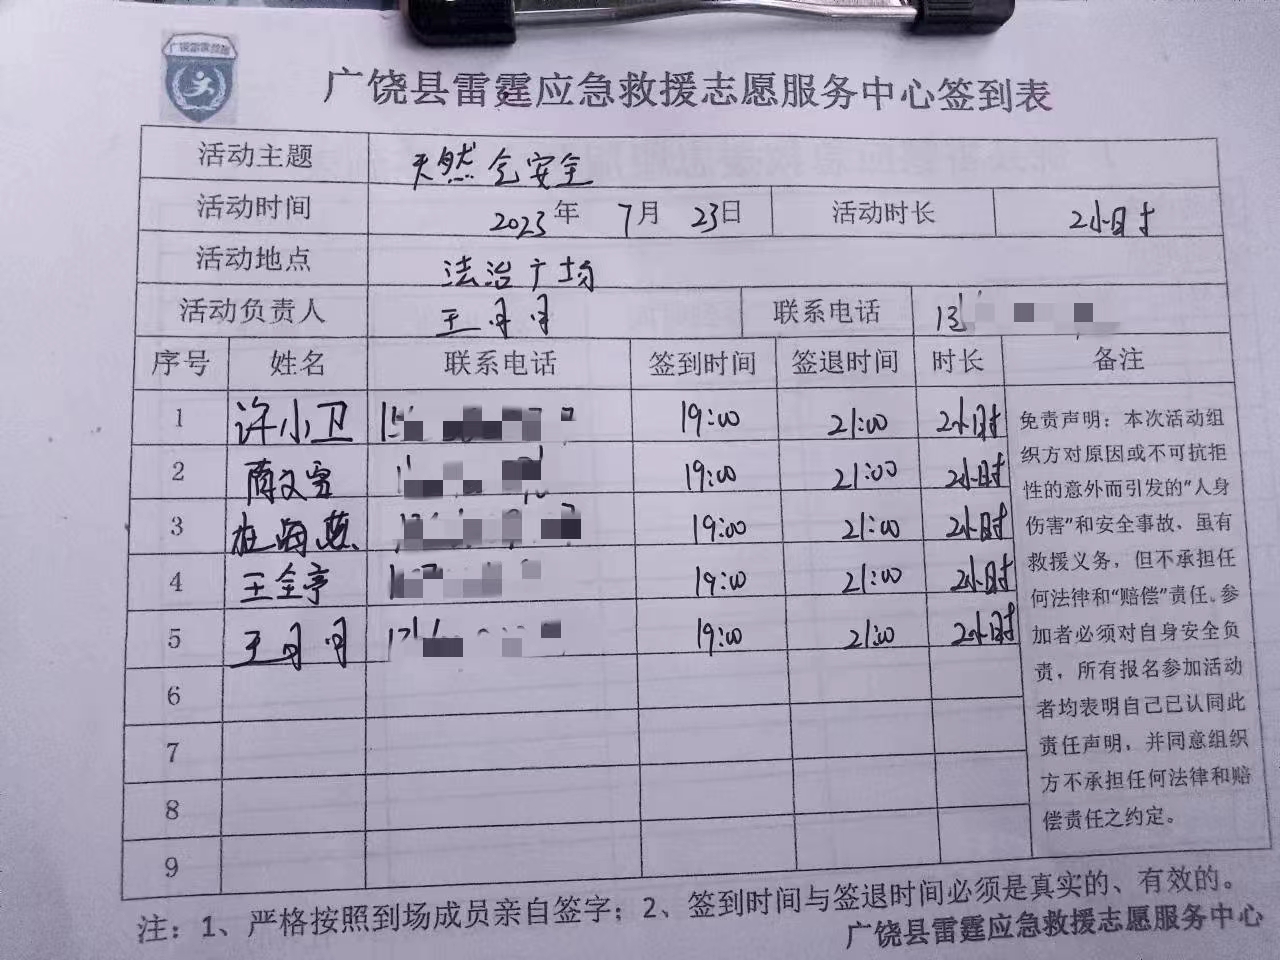 广饶雷霆救援
广饶县雷霆应急救援志愿服务中心签到表
活动主题 天然气安全
活动时间 2023年 7月 23日 活动时长 2小时
活动地点 法治广场
活动负责人 王丹丹 联系电话 13
序号 姓名 联系电话 签到时间 签退时间 时长 备注
1 许小卫 19:00 21:00 2小时
2 19:00 21:00 2小时
3 杜海燕 19:00 21:00 2小时
4 王全亭 19:00 21:00 2小时
5 王丹丹 19:00 21:00 2小时
6
7
8
9
免责声明：本次活动组
织方对原因或不可抗拒
性的意外而引发的"人身
伤害"和安全事故，虽有
救援义务，但不承担任
何法律和"赔偿"责任。参
加者必须对自身安全负
责，所有报名参加活动
者均表明自己已认同此
责任声明，并同意组织
方不承担任何法律和赔
偿责任之约定。
注：1、严格按照到场成员亲自签字；2、签到时间与签退时间必须是真实的、有效的。
广饶县雷霆应急救援志愿服务中心